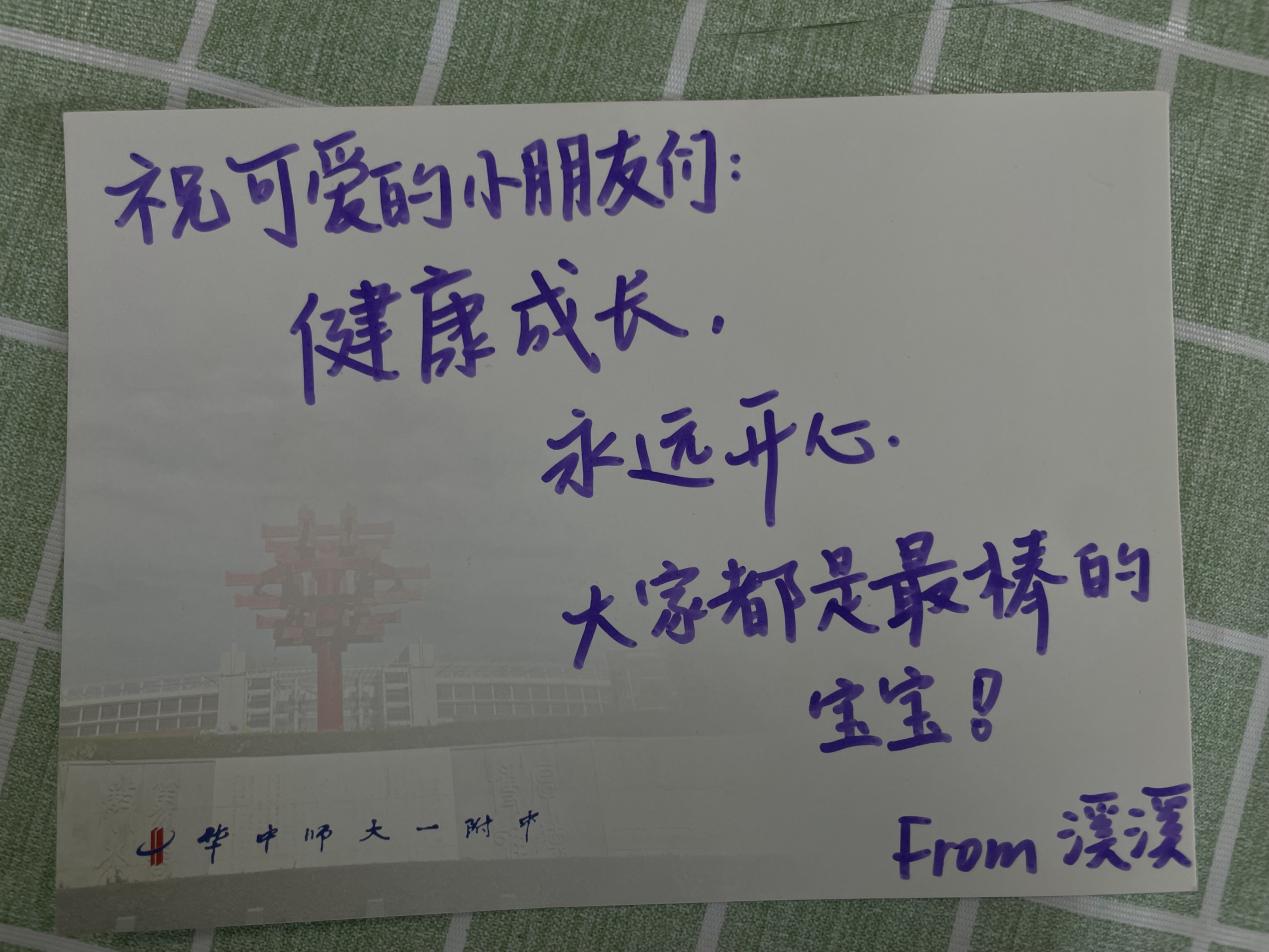 祝可爱的小朋友们:
健康成长,
永远开心.
大家都是最棒的
宝宝!
From 溪溪
华中师大一附中